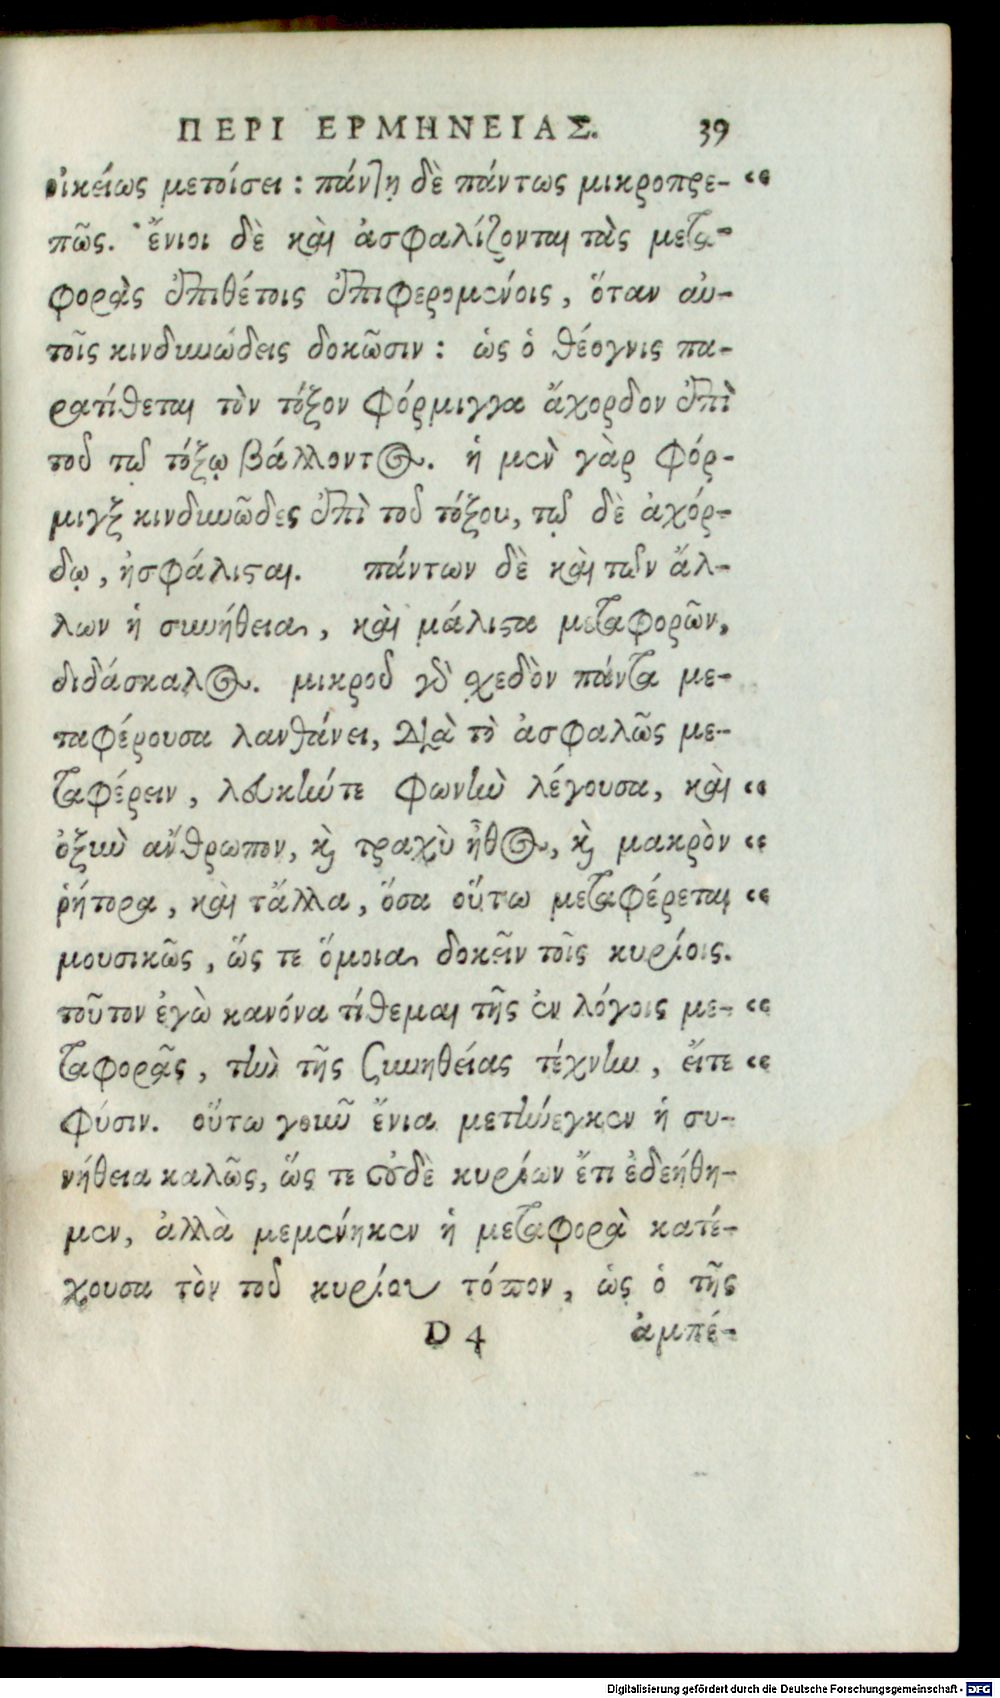 ΠΕΡΙ ΕΡΜΗΝΕΙΑΣ. 39
οἰκείως μετοίσει : πάντη δὲ πάντως μικροπρε- “
πῶς. ἔνιοι δὲ καὶ ἀσφαλίζονται τὰς μετα-
φορὰς ἐπιθέτοις ἐπιφερομένοις, ὅταν αὐ-
τοῖς κινδυνώδεις δοκῶσιν : ὡς ὁ θέογνις πα-
ρατίθεται τὸν τόξον φόρμιγγα ἄχορδον ἐπὶ
τοῦ τῷ τόξῳ βάλλοντος. ἡ μὲν γὰρ φόρ-
μιγξ κινδυνῶδες ἐπὶ τοῦ τόξου, τῷ δὲ ἀχόρ-
δῳ, ἠσφάλισται. πάντων δὲ καὶ τῶν ἄλ-
λων ἡ συνήθεια, καὶ μάλιστα μεταφορῶν,
διδάσκαλος. μικροῦ γὰρ σχεδὸν πάντα με-
ταφέρουσα λανθάνει, διὰ τὸ ἀσφαλῶς με-
ταφέρειν, λευκήν τε φωνὴν λέγουσα, καὶ “
ὀξὺν ἄνθρωπον, καὶ τραχὺ ἦθος, καὶ μακρὸν “
ῥήτορα, καὶ τἄλλα, ὅσα οὕτω μεταφέρεται “
μουσικῶς, ὥς τε ὅμοια δοκεῖν τοῖς κυρίοις.
τοῦτον ἐγὼ κανόνα τίθεμαι τῆς ἐν λόγοις με- “
ταφορᾶς, τὴν τῆς συνηθείας τέχνην, εἴτε “
φύσιν. οὕτω γοῦν ἔνια μετήνεγκεν ἡ συ-
νήθεια καλῶς, ὥς τε οὐδὲ κυρίων ἔτι ἐδεήθη-
μεν, ἀλλὰ μεμένηκεν ἡ μεταφορὰ κατέ-
χουσα τὸν τοῦ κυρίου τόπον, ὡς ὁ τῆς
D 4 ἀμπέ-
Digitalisierung gefördert durch die Deutsche Forschungsgemeinschaft - DFG